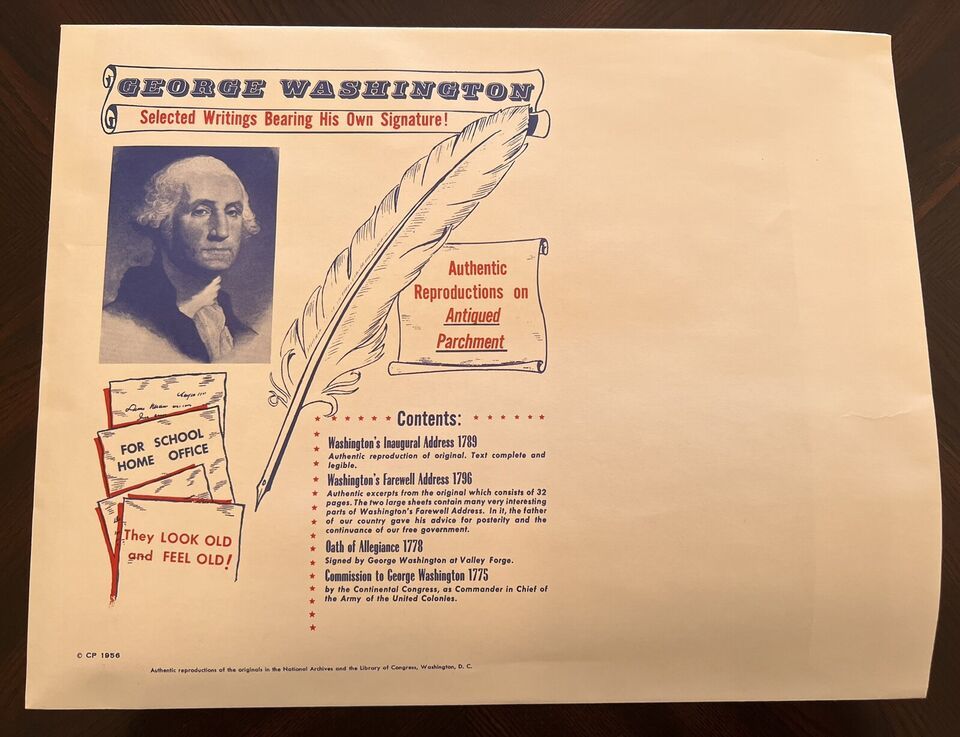 GEORGE WASHINGTON
Selected Writings Bearing His Own Signature!
Authentic
Reproductions on
Antiqued
Parchment
FOR SCHOOL
HOME OFFICE
They LOOK OLD
and FEEL OLD!
Contents:
Washington's Inaugural Address 1789
Authentic reproduction of original. Text complete and
legible.
Washington's Farewell Address 1796
Authentic excerpts from the original which consists of 32
pages. The two large sheets contain many very interesting
parts of Washington's Farewell Address. In it, the father
of our country gave his advice for posterity and the
continuance of our free government.
Oath of Allegiance 1778
Signed by George Washington at Valley Forge.
Commission to George Washington 1775
by the Continental Congress, as Commander in Chief of
the Army of the United Colonies.
© CP 1956
Authentic reproductions of the originals in the National Archives and the Library of Congress, Washington, D. C.